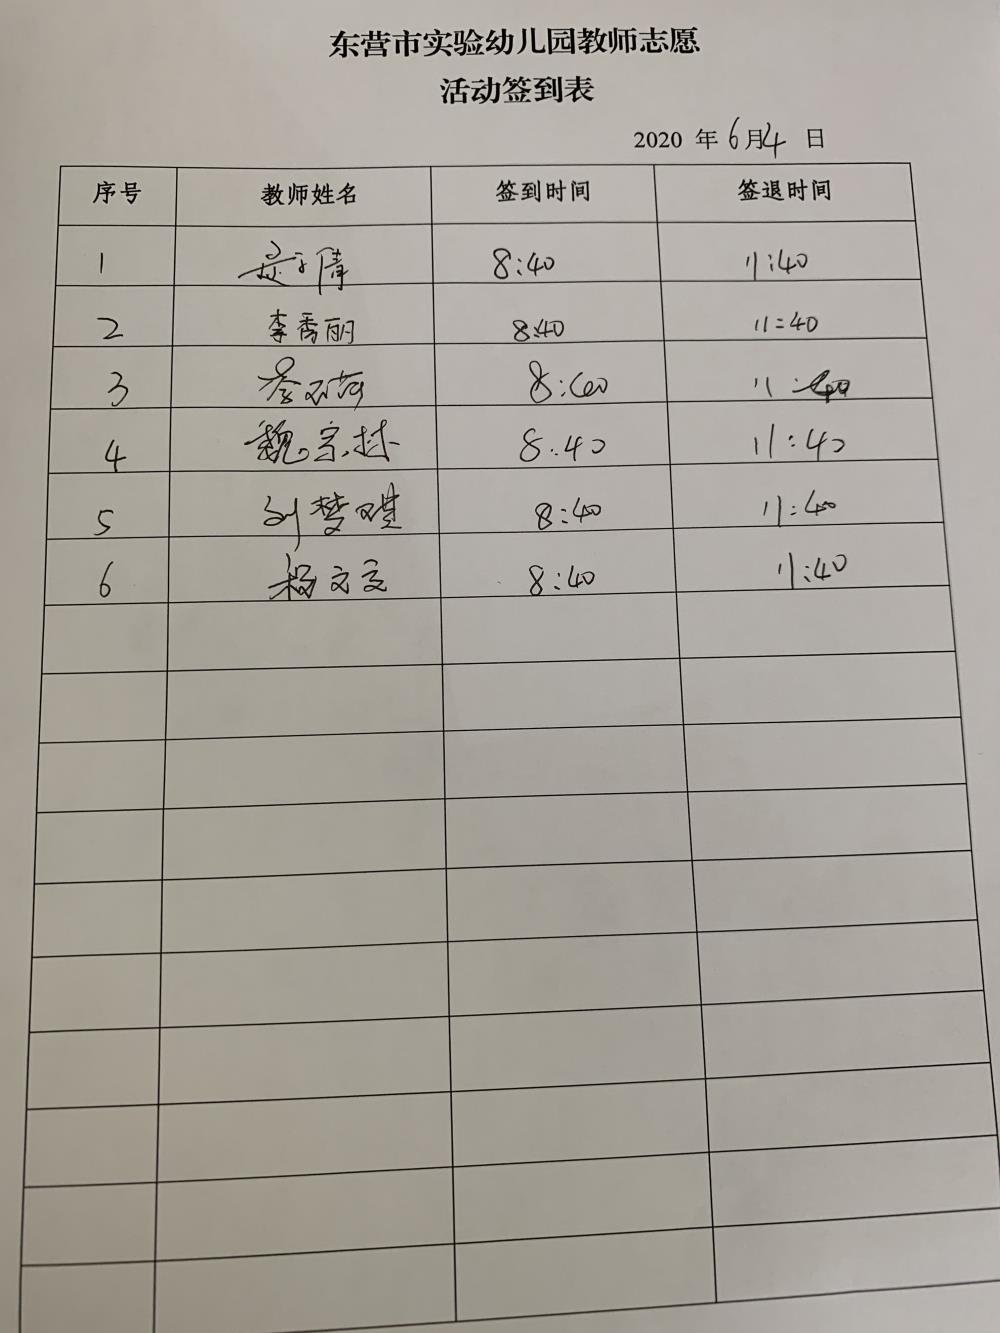 东营市实验幼儿园教师志愿
活动签到表
2020 年 6月4 日
序号 教师姓名 签到时间 签退时间
1 8:40 11:40
2 李秀丽 8:40 11:40
3 8:40 11:40
4 魏宗林 8:40 11:40
5 刘梦琪 8:40 11:40
6 杨文文 8:40 11:40